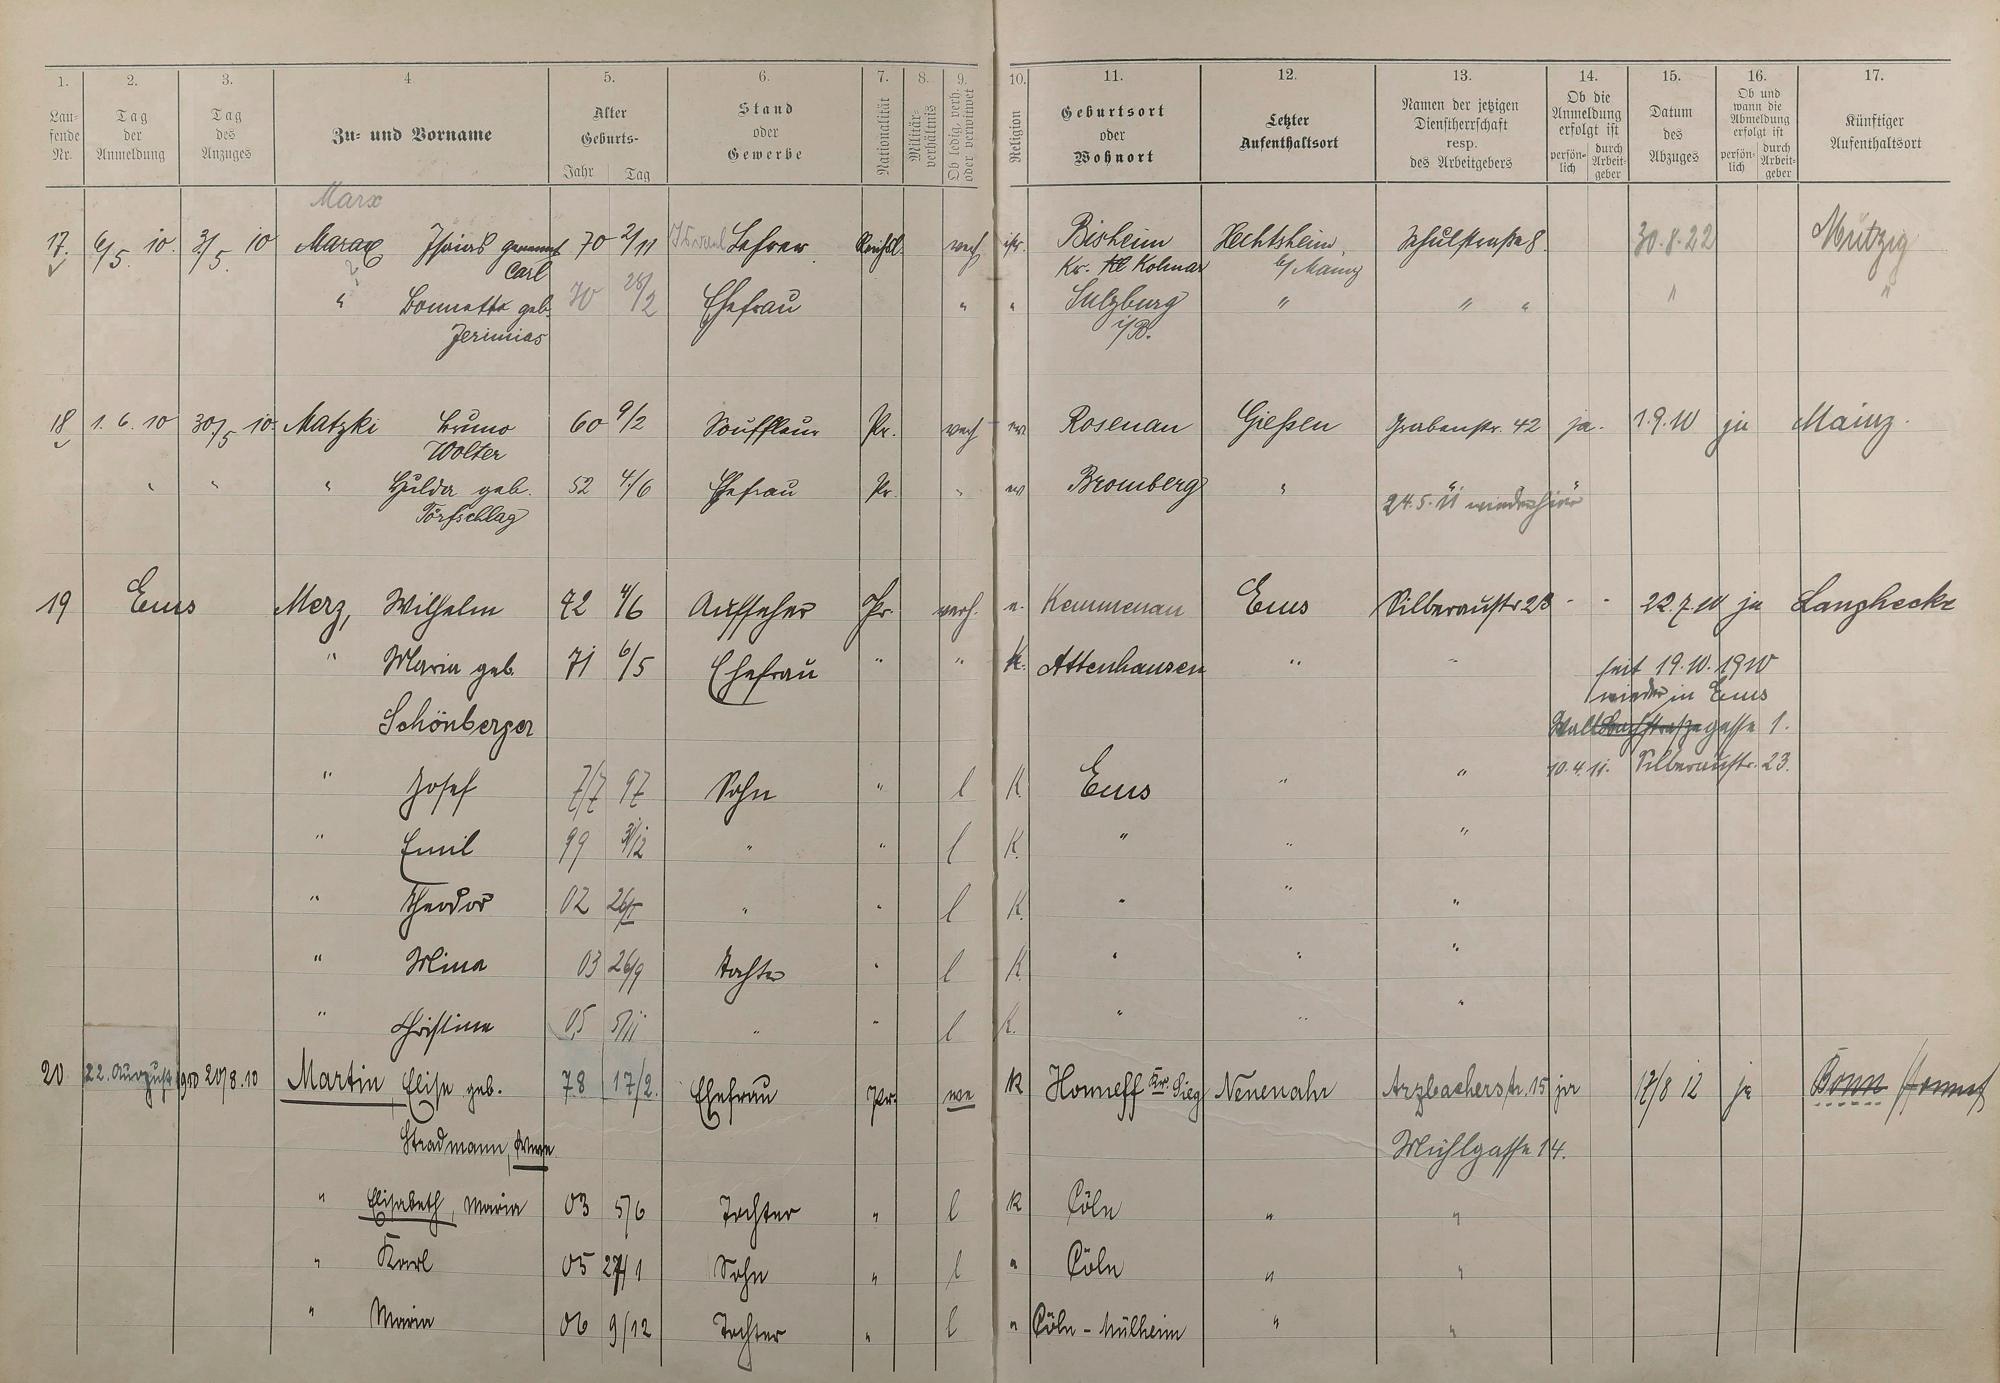 1. 2. 3. 4 5. 6. 7. 8. 9. 10. 11. 12. 13. 14. 15. 16. 17.
Lau-
fende
Nr.
Tag
der
Anmeldung
Tag
des
Anzuges
Zu- und Vorname
Alter
Geburts-
Jahr Tag
Stand
oder
Gewerbe
Nationalität
Militär-
verhältnis
Ob ledig, verh.
oder verwitwet
Religion
Geburtsort
oder
Wohnort
Letzter
Aufenthaltsort
Namen der jetzigen
Dienstherrschaft
resp.
des Arbeitgebers
Ob die
Anmeldung
erfolgt ist
persön-
lich
durch
Arbeit-
geber
Datum
des
Abzuges
Ob und
wann die
Abmeldung
erfolgt ist
persön-
lich
durch
Arbeit-
geber
Künftiger
Aufenthaltsort
Marx
17. 6/5. 10. 3/5. 10 genannt 70 2/11 Lehrer Reichsl. verh isr. Bisheim Hechtsheim Schulstraße 8. 30.8.22 Mutzig
Carl Kr. Kolmar b/ Mainz
" geb. 70 28/2 Ehefrau " " Sulzburg " " " " "
Jerimias i/B.
18 1. 6. 10 30/5 10. Matzki Bruno 60 9/2 Souffleur Pr. verh ev Rosenau Gießen Grabenstr. 42 ja. 1.9.10 ja Mainz.
Wolter
" " " Hulda geb. 52 4/6 Ehefrau Pr. " ev Bromberg " "
Torfschlag 24.5.11 wieder hier
19 Ems Merz, Wilhelm 72 4/6 Aufseher Pr. verh. e. Kemmenau Ems Silberaustr 23 - - 22.7.10 ja Langhecke
" Maria geb. 71 6/5 Ehefrau " " k. Attenhausen " " seit 19.10.1910
wieder in Ems
Schönberger gasse 1.
" Josef 7/7 97 Sohn " l K. Ems " " 10.4.11. Silberaustr. 23.
" Emil 99 31/12 " " l K. " " "
" Theodor 02 " " l K. " " "
" Mina 03 26/9 Tochter " l K. " " "
" Christina 05 5/11 " " l K. " " "
20 22. August 1910 20/8.10 Martin, Elise geb. 78 17/2. Ehefrau Pr. we k Honneff Kr. Sieg Neuenahr Arzbacherstr. 15 ja 17/8 12 ja Bonn
Stradmann, Mühlgasse 14.
" Elisabeth, Maria 03 5/6 Tochter " l k Cöln " "
" Karl 05 27/1 Sohn " l " Cöln " "
" Maria 06 9/12 Tochter " l " Cöln - Mülheim " "